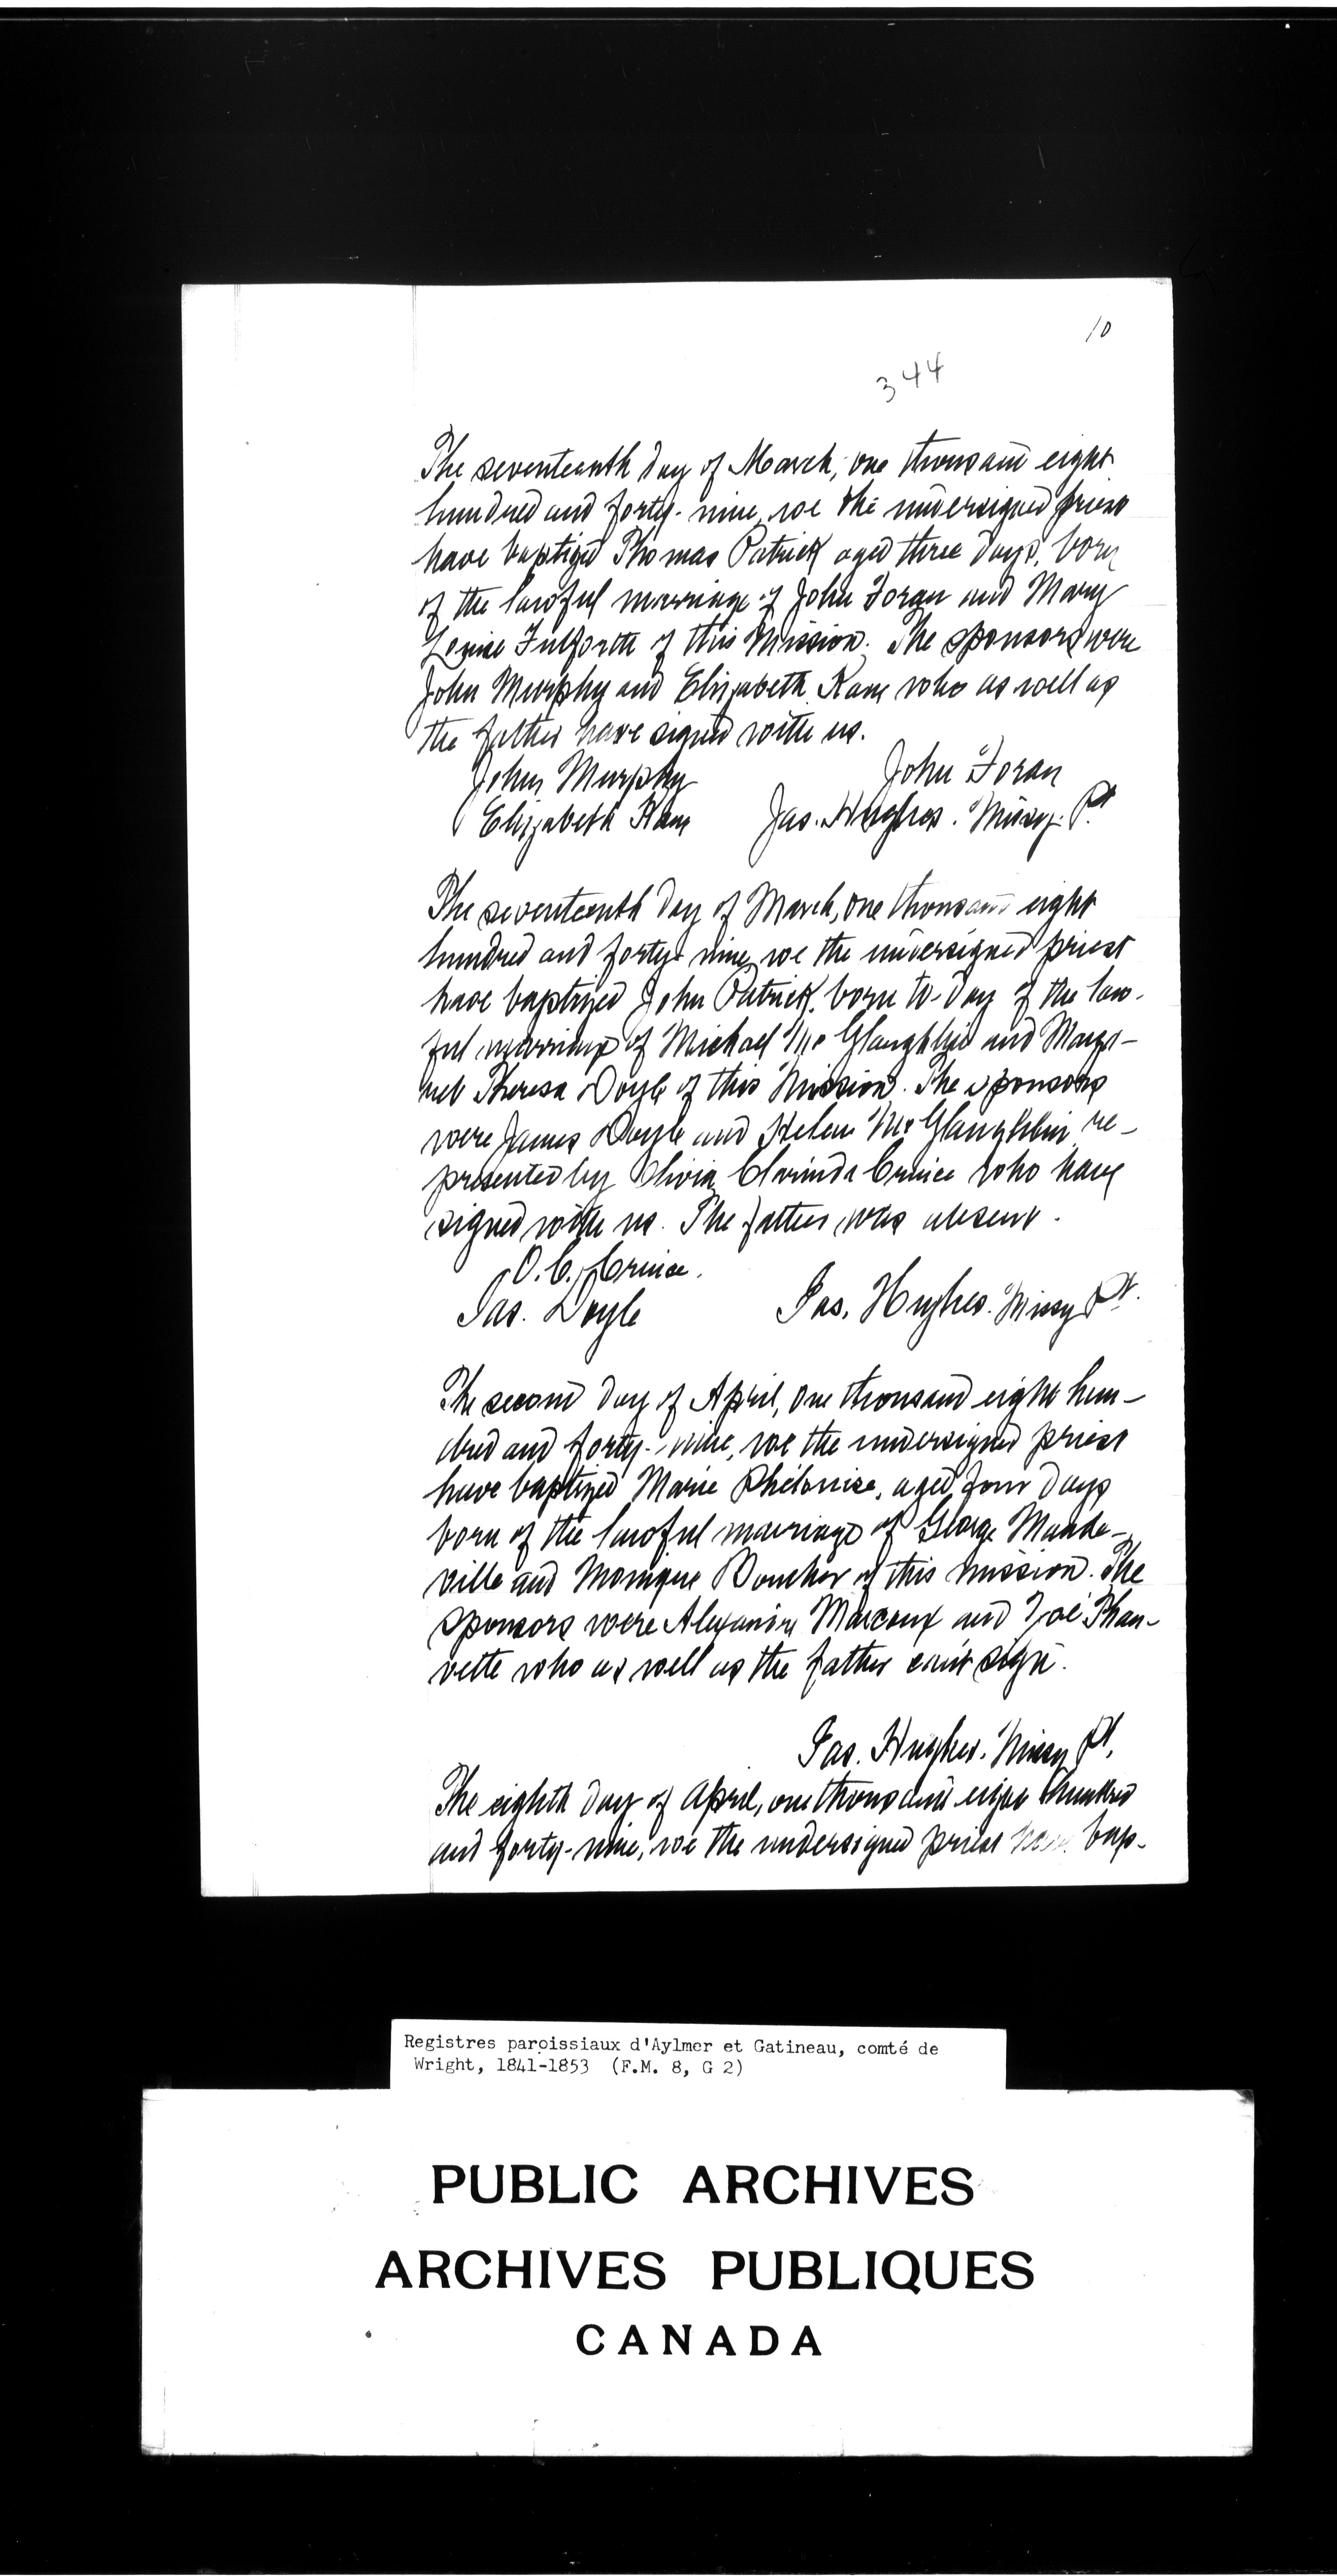 10
344
The seventeenth day of March, one thousand eight
hundred and forty-nine, we the undersigned priest
have baptized Thomas Patrick aged three days, born
of the lawful marriage of John Foran and Mary
Louise Fulforth of this Mission. The sponsors were
John Murphy and Elizabeth Kane who as well as
the father have signed with us.
John Murphy John Foran
Elizabeth Kane Jas. Hughes. Missy. Pt.
The seventeenth day of March, one thousand eight
hundred and forty-nine, we the undersigned priest
have baptized John Patrick, born to-day of the law-
ful marriage of Michael McGlaughlin and Marga-
ret Theresa Doyle of this Mission. The sponsors
were James Doyle and Helen McGlaughlin re-
presented by Olivia Clorinda Cruice who have
signed with us. The father was absent.
O.C. Cruice.
Jas. Doyle Jas. Hughes. Missy Pt.
The second day of April, one thousand eight hun-
dred and forty-nine, we the undersigned priest
have baptized Marie Philonise, aged four days
born of the lawful marriage of George Mande-
ville and Monique Boucher of this mission. The
sponsors were Alexandre Marcoux and Zoé
vette who as well as the father can't sign.
Jas. Hughes. Missy Pt.
The eighth day of April, one thousand eight hundred
and forty-nine, we the undersigned priest have bap-
Registres paroissiaux d'Aylmer et Gatineau, comté de
Wright, 1841-1853 (F.M. 8, G 2)
PUBLIC ARCHIVES
ARCHIVES PUBLIQUES
CANADA